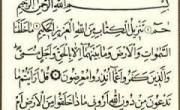 بسم الله الرحمن الرحيم
حم تنزيل الكتاب من الله العزيز الحكيم ما خلقنا
السموات والارض وما بينهما الا بالحق واجل مسمى
والذين كفروا عما انذروا معرضون قل ارءيتم ما
تدعون من دون الله اروني ماذا خلقوا من الارض ام